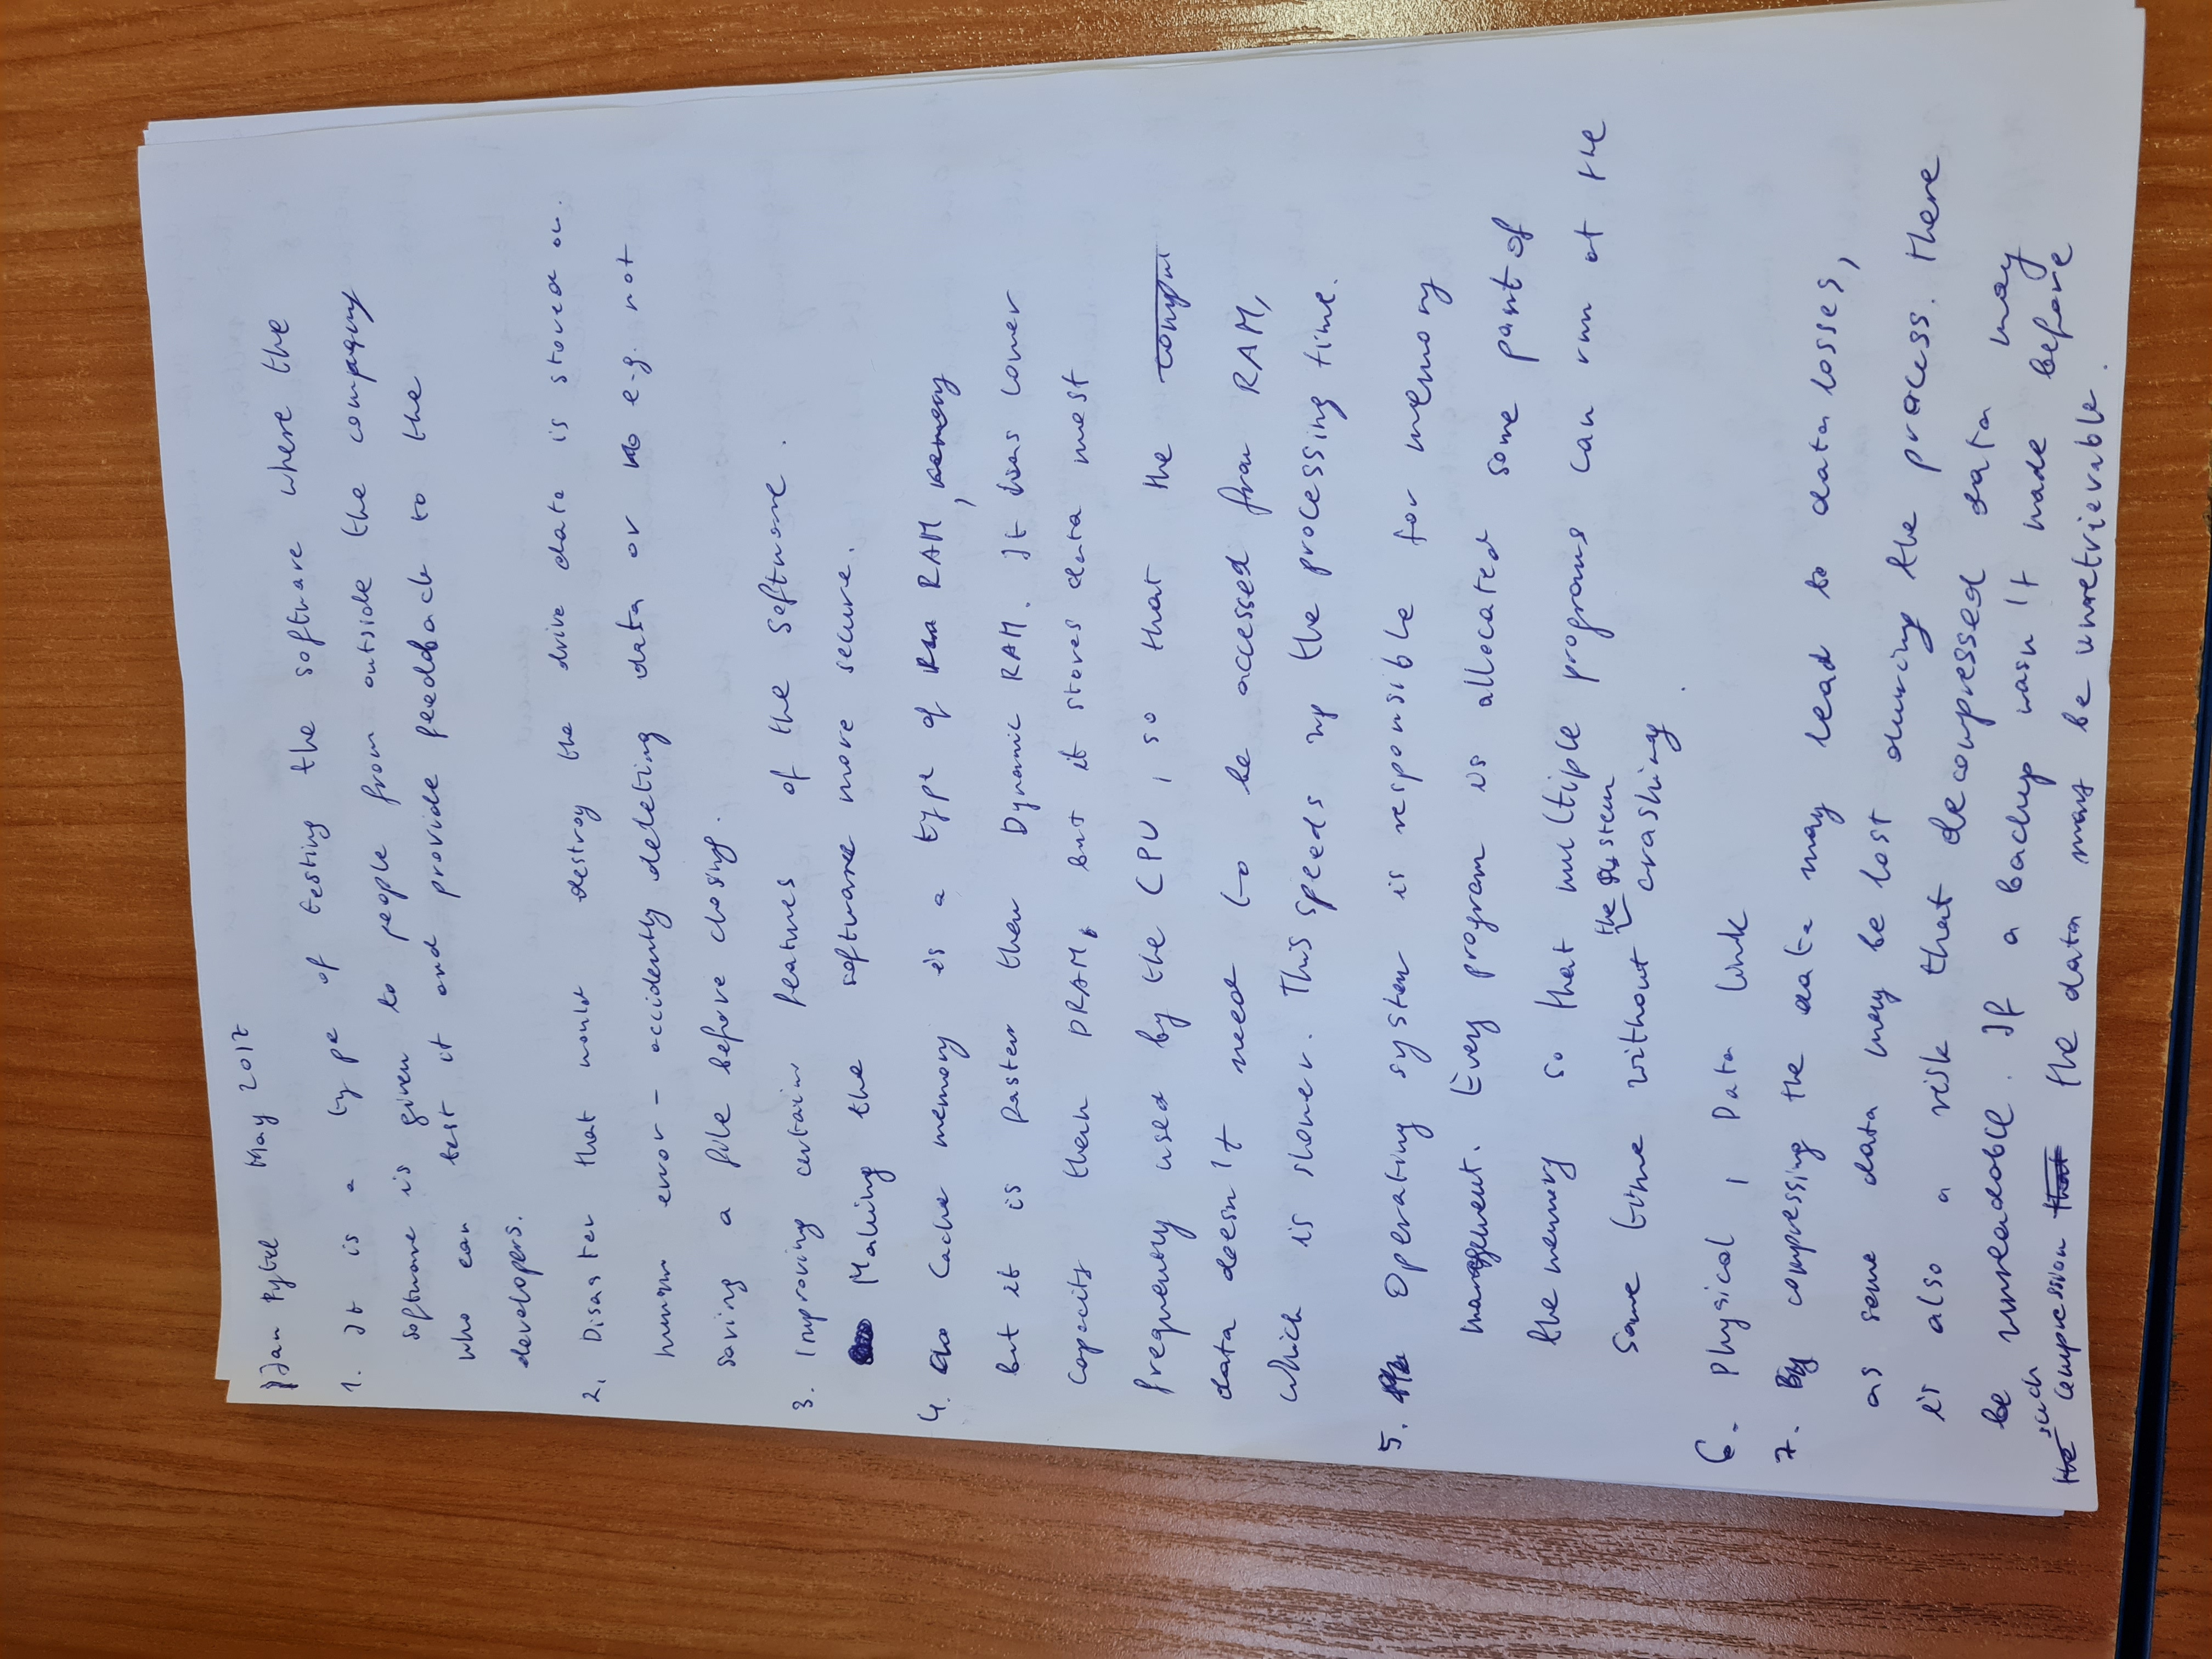 Jan Rytel May 2017
1. It is a type of testing the software where the
software is given to people from outside the company
who can test it and provide feedback to the
developers.
2. Disaster that would destroy the drive data is stored on.
human error - accidently deleting data or e.g. not
saving a file before closing.
3. Improving certain features of the software.
Making the software more secure.
4. Cache memory is a type of RAM,
but it is faster then Dynamic RAM. It has lower
capacity then DRAM, but it stores data most
frequency used by the CPU, so that the
data doesn't need to be accessed from RAM,
which is slower. This speeds up the processing time.
5. Operating system is responsible for memory
management. Every program is allocated some part of
the memory so that multiple programs can run at the
same time without the system crashing.
6. Physical, Data link
7. By compressing the data may lead to data losses,
as some data may be lost during the process. There
is also a risk that decompressed data may
be unreadable. If a backup wasn't made before
such compression the data may be unretrievable.